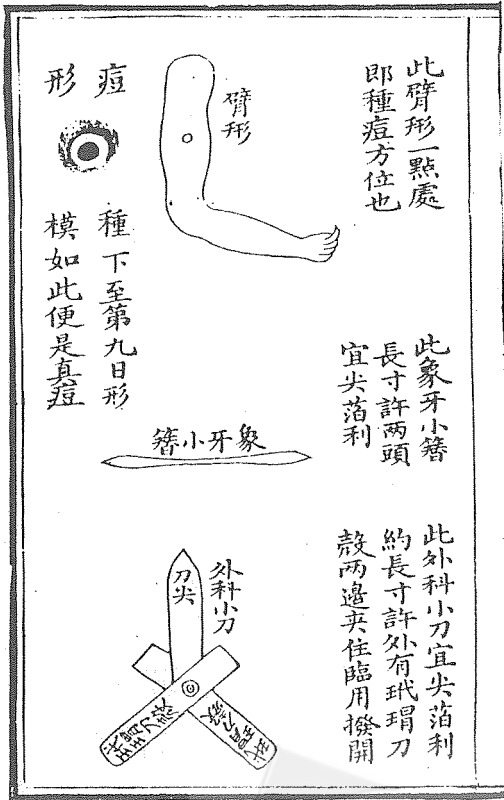 此臂形一點處
即種痘方位也
臂形
痘形
種下至第九日形
模如此便是真痘
此象牙小簪
長寸許两頭
宜尖萡利
象牙小簪
此外科小刀宜尖萡利
約長寸許外有玳瑁刀
殼两邊夾住臨用撥開
外科小刀
刀尖
玳瑁刀殼
玳瑁刀殼